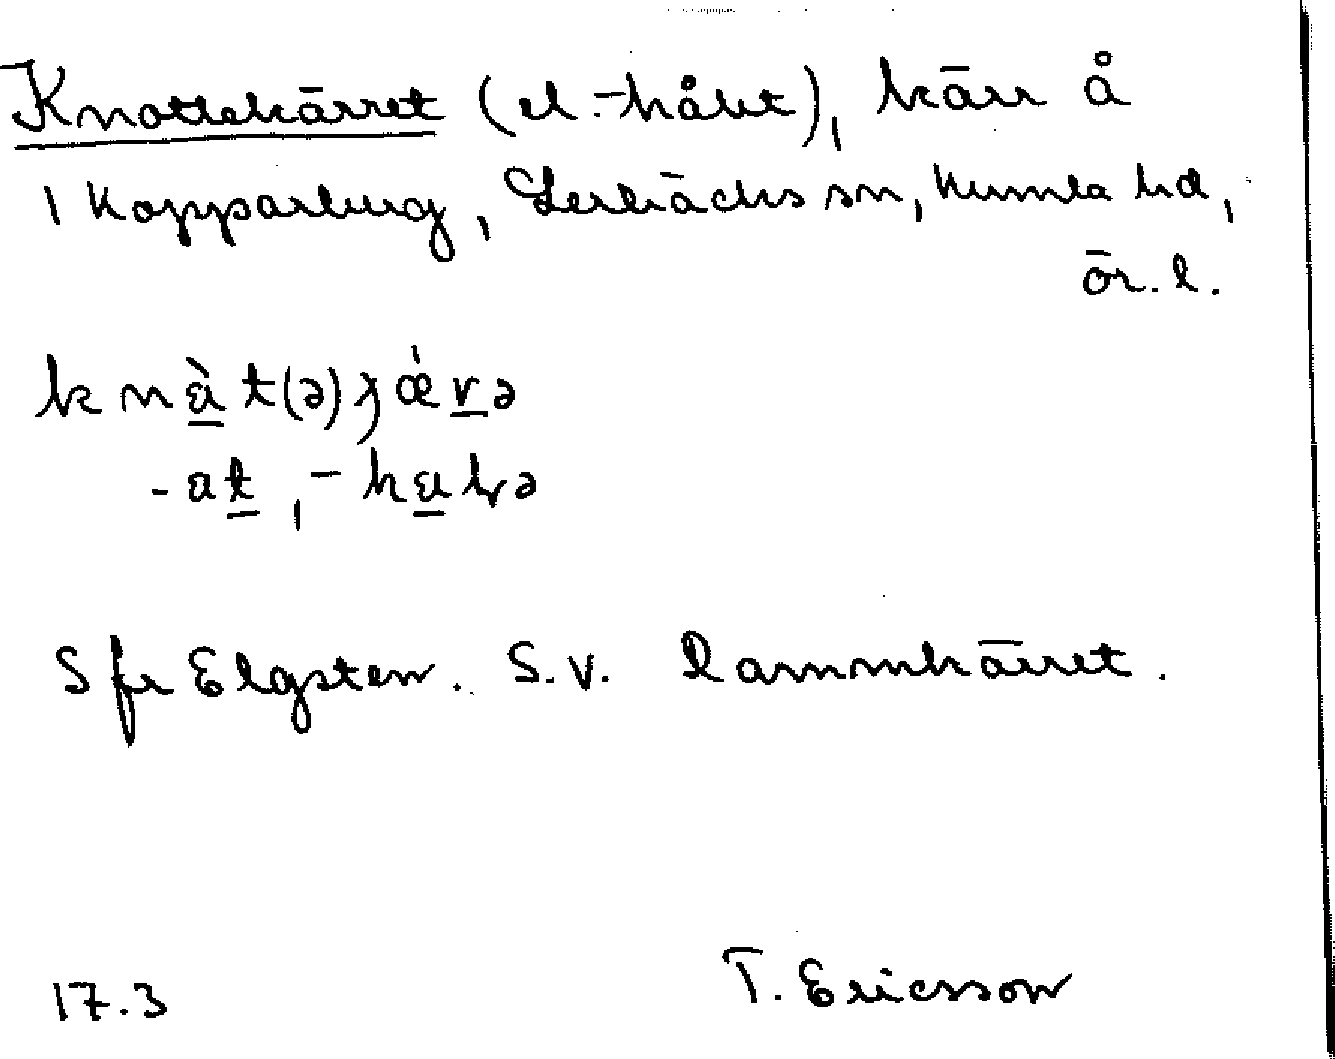 Knottekärret (el. -hålet), kärr å
1 Kopparberg, Lerbäcks sn, Kumla hd,
ör. l.
knàt(ə)ʒǽrə
-at, -halə
S fr Elgsten. S.V. Lammkärret.
17.3 T. Ericsson